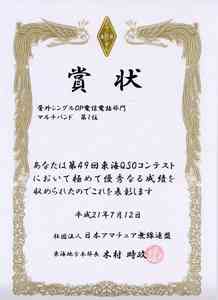 賞状
管外シングルOP電信電話部門
マルチバンド 第1位
あなたは第49回東海QSOコンテスト
において極めて優秀なる成績を
収められたのでこれを表彰します
平成21年7月12日
社団法人 日本アマチュア無線連盟
東海地方本部長 木村 時政